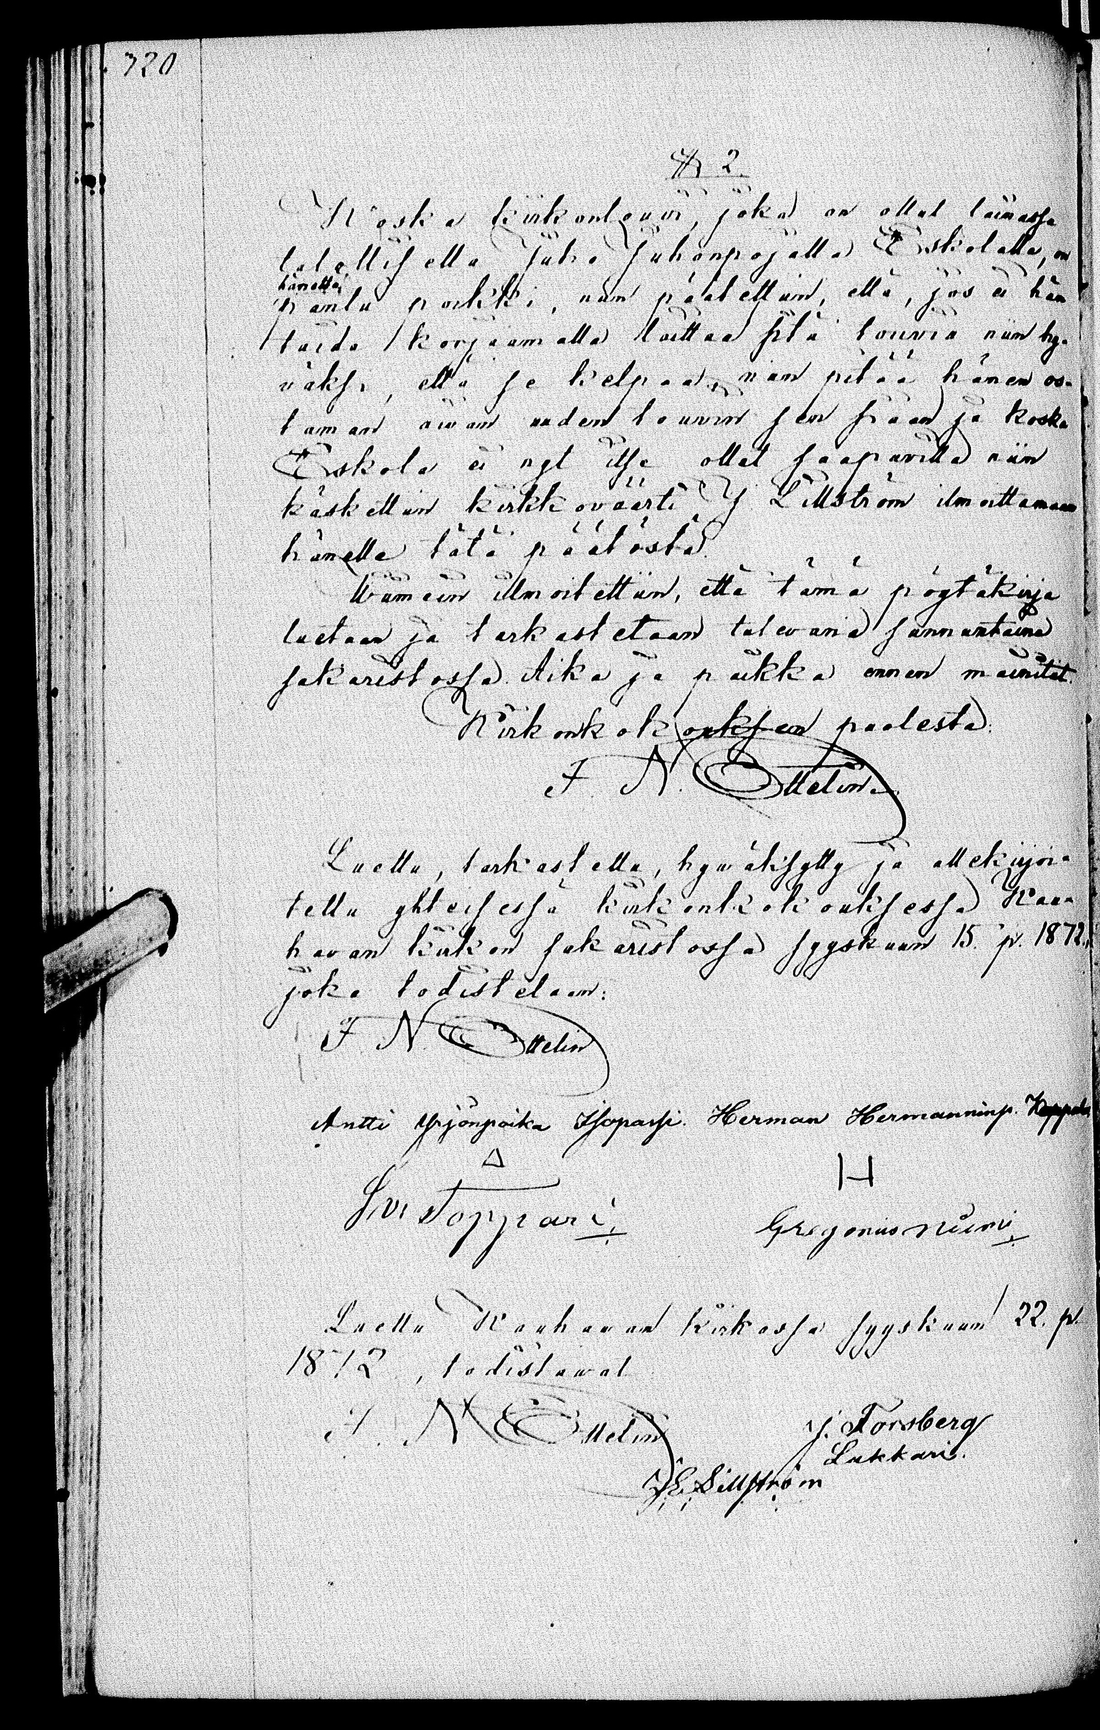 720
№ 2.
Koska kirkontouvi, joka on ollut lainassa
talollisella Juho Juhonpojalla Eskolalla, on
hänellä
pantu poikki, niin päätettiin, että, jos ei hän
taida korjaamalla laittaa sitä touvia niin hy-
väksi, että se kelpaa, niin pitää hänen os-
taman aivan uuden touvin sen siaan ja koska
Eskola ei nyt itse ollut saapuvilla niin
käskettiin kirkkoväärti J Lillström ilmoittamaan
hänelle tätä päätöstä.
Wiimein ilmoitettiin, että tämä pöytäkirja
luetaan ja tarkastetaan tulevana sunnuntaina
sakaristossa. Aika ja paikka ennen mainitut.
Kirkonkokouksen puolesta:
F. N. Ottelin
Luettu, tarkastettu, hywäksytty ja allekirjoi-
tettu yhteisessä kirkonkokouksessa Kau-
havan kirkon sakaristossa syyskuun 15. p. 1872.,
joka todistetaan:
F N Ottelin
Antti Yrjönpoika Isopassi. Herman Hermanninp.
H
Toppari
Gregorius Niemi
Luettu Kauhavan kirkossa syyskuun 22. p.
1872, todistavat
F. N Ottelin
J. Forsberg
Lukkari.
J E Lillström